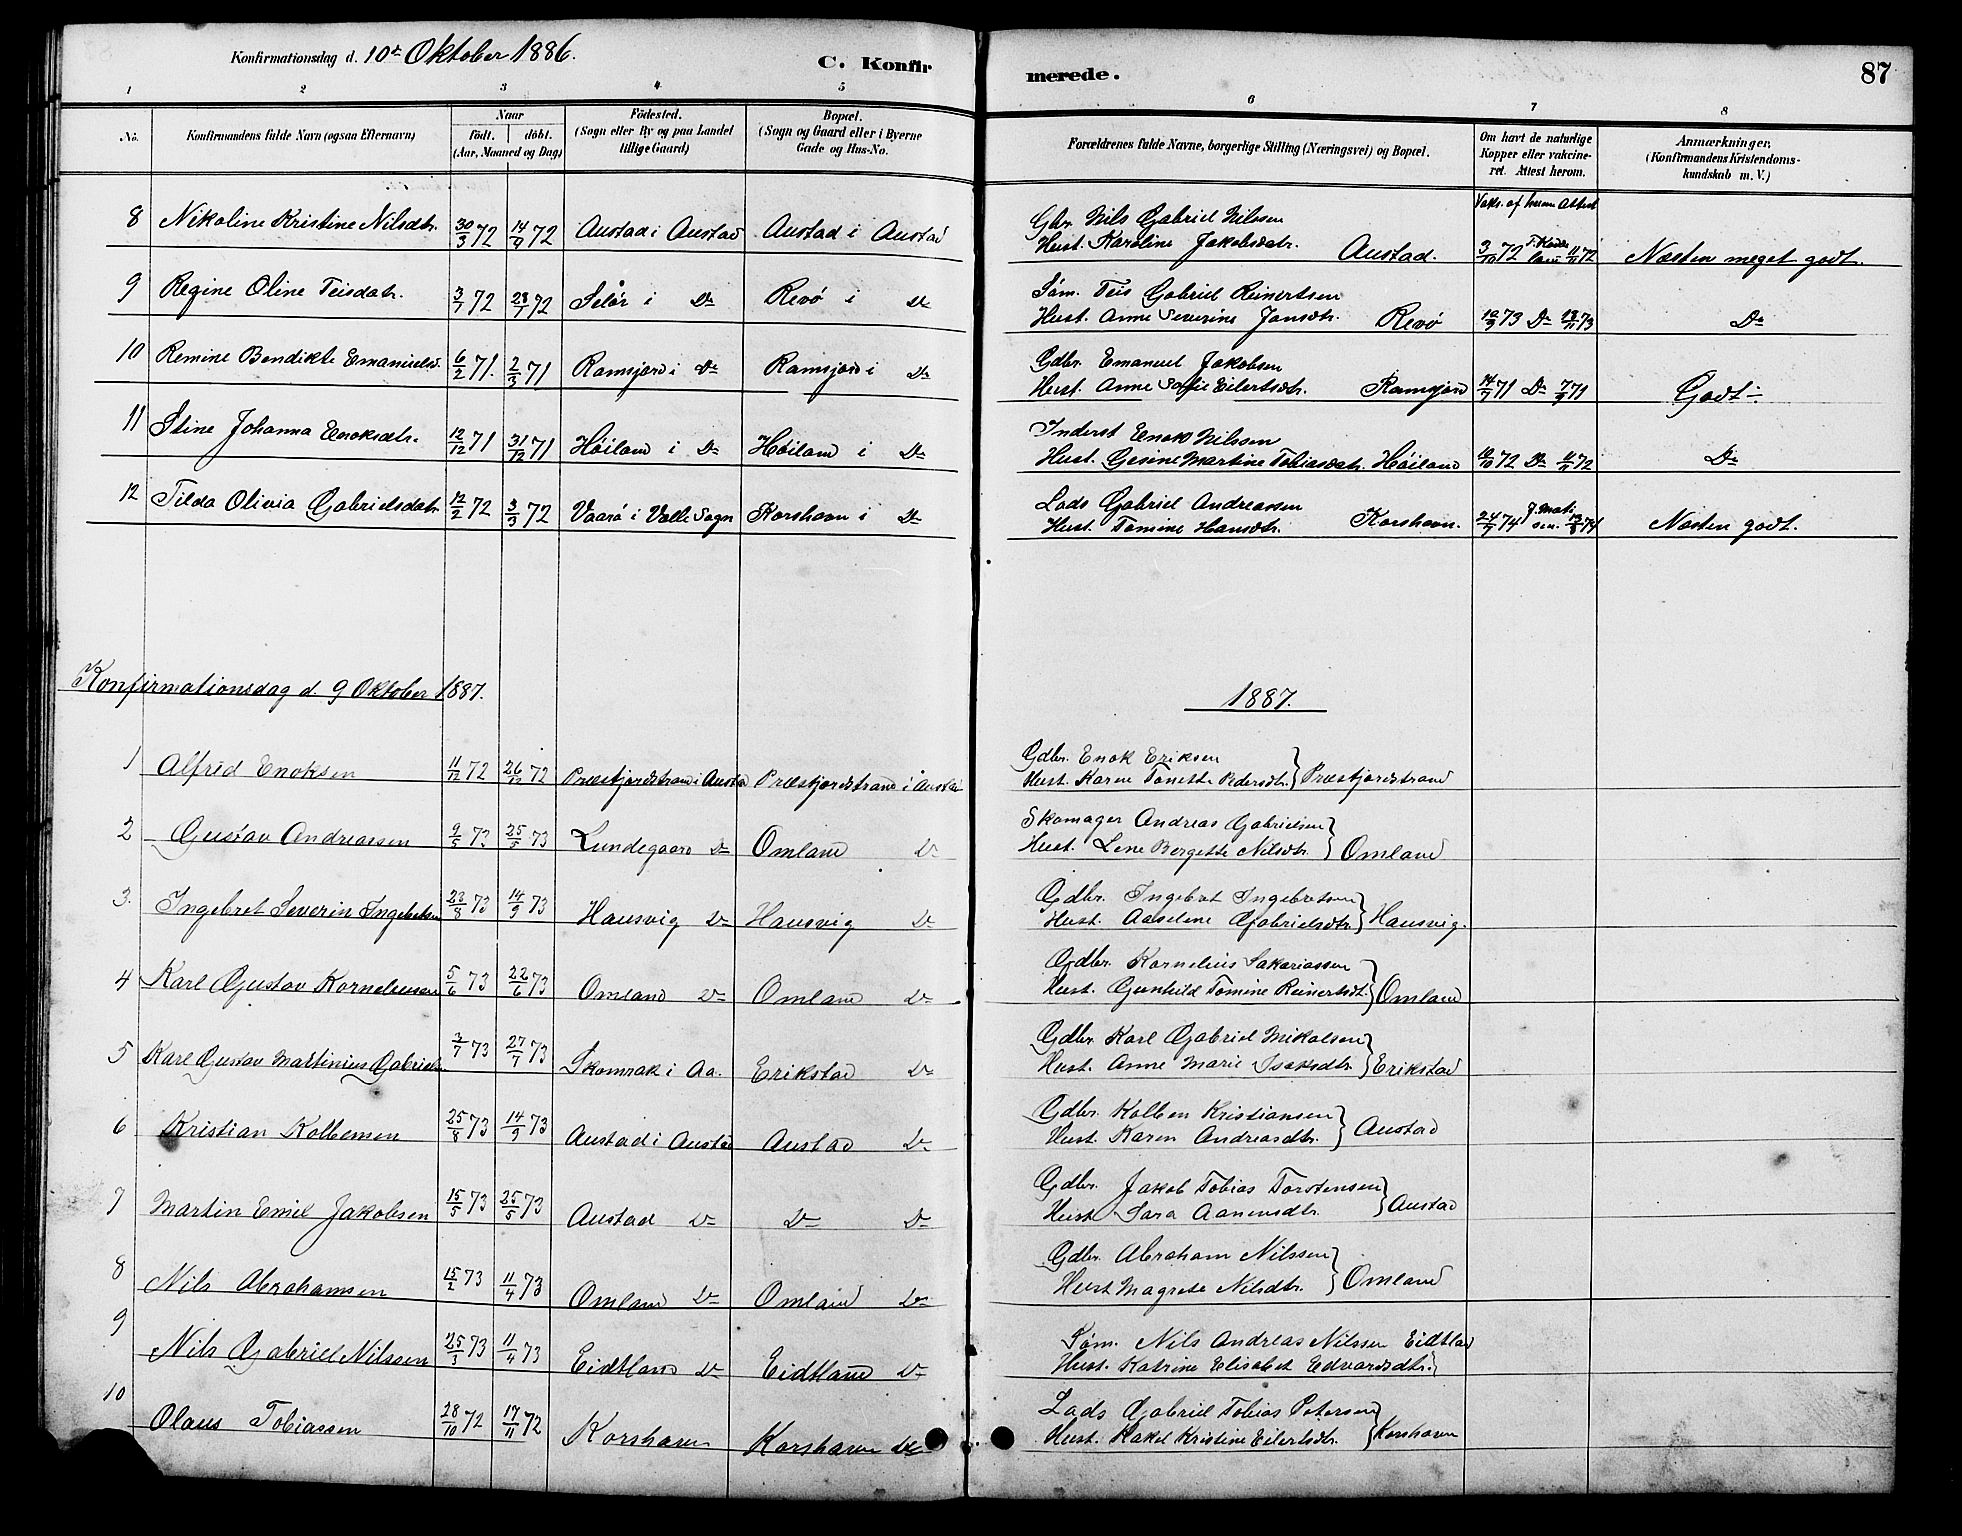 Konfirmationsdag d. 10de Oktober 1886. C. Konfirmerede. 87
1 2 3 4 5 6 7 8
No. Konfirmandens fulde Navn (ogsaa Efternavn) Naar født. døbt. (Aar, Maaned og Dag) Fødested. (Sogn eller By og paa Landet tillige Gaard) Bopæl. (Sogn og Gaard eller i Byerne Gade og Hus-No. Forældrenes fulde Navne, borgerlige Stilling (Næringsvei) og Bopæl. Om havt de naturlige Kopper eller vakcineret. Attest herom. Anmærkninger, (Konfirmandens Kristendomskundskab m. V.)
8 Nikoline Kristine Nilsdtr. 30/3 72 14/9 72 Austad i Austad Austad i Austad Gbr. Nils Gabriel Nilssen
Hust. Karoline Jakobsdtr. Austad. 3/10 72 11/11 72 Næsten meget godt.
9 Regine Oline Teisdatr. 3/7 72 28/7 72 Selør i Do Revø i Do Søm. Teis Gabriel Reinertsen
Hust. Anne Severine Jansdtr. Revø 10/9 73 Do 18/11 73 Do
10 Remine Bendikte Emanuelsd. 6/2 71. 2/3 71 Ramsjord i Do Ramsjord i Do Gdbr. Emanuel Jakobsen
Hust. Anne Sofie Eilertsdtr. Ramsjord 14/7 71 Do 7/9 71 Godt ÷
11 Stine Johanna Enoksdtr. 12/12 71 31/12 71 Høiland i Do Høiland i Do Inderst Enok Nilssen
Hust. Gesine Martine Tobiasdatr. Høiland 72 Do 72 Do
12 Tilda Olivia Gabrielsdatr 12/2 72 3/3 72 Vaarø i Valle Sogn Korshavn i Do Lods Gabriel Andreassen
Hust. Tomine Hansdtr. Korshavn. 24/7 74 74 Næsten godt.
Konfirmationsdag d. 9 Oktober 1887. 1887.
1 Alfred Enoksen 11/12 72 26/12 72 Præstfjordstrand i Austad Præstfjordstrand i Austad Gdbr. Enok Eriksen
Hust. Karen Tonette Pedersdtr. } Præstfjordstrand
2 Gustav Andreassen 9/5 73 25/5 73 Lundegaard Do Omland Do Skomager Andreas Gabrielsen
Hust. Lene Bergette Nilsdtr. } Omland
3. Ingebret Severin Ingebretsen 23/8 73 14/9 73 Hausvig Do Hausvig Do Gdbr. Ingebret Ingebretsen
Hust. Aaselene Gabrielsdtr. } Hausvig.
4 Karl Gustav Korneliussen 5/6 73 22/6 73 Omland Do Omland Do Gdbr. Kornelius Sakariassen
Hust. Gunhild Tomine Reinertsdt. } Omland
5 Karl Gustav Martinius Gabriels. 3/7 73 27/7 73 Skomrak i Aa. Erikstad Do Gdbr. Karl Gabriel Mikalsen
Hust. Anne Marie Isaksdtr. } Erikstad
6 Kristian Kolbensen 25/8 73 14/9 73 Austad i Austad Austad Do Gdbr. Kolben Kristiansen
Hust. Karen Andreasdtr. } Austad
7 Martin Emil Jakobsen 15/5 73 25/5 73 Austad Do Do Do Gdbr. Jakob Tobias Torstensen
Hust. Sara Aanensdtr. } Austad
8 Nils Abrahamsen 15/2 73 11/4 73 Omland Do Omland Do Gdbr. Abraham Nilssen
Hust Magrete Nilsdtr. } Omland
9 Nils Gabriel Nilssen 25/3 73 11/4 73 Eidtland Do Eidtland Do Søm. Nils Andreas Nilssen Eidtland
Hust. Katrine Elisabet Edvardsdtr. }
10 Olaus Tobiassen 28/10 72 17/11 72 Korshavn Korshavn Do Lods Gabriel Tobias Petersen
Hust. Rakel Kristine Eilertsdtr. } Korshavn